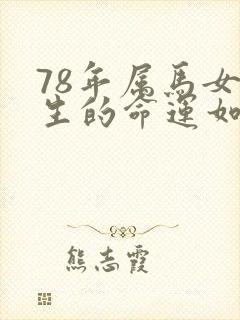 78年属馬女
生的命運如
熊志霞